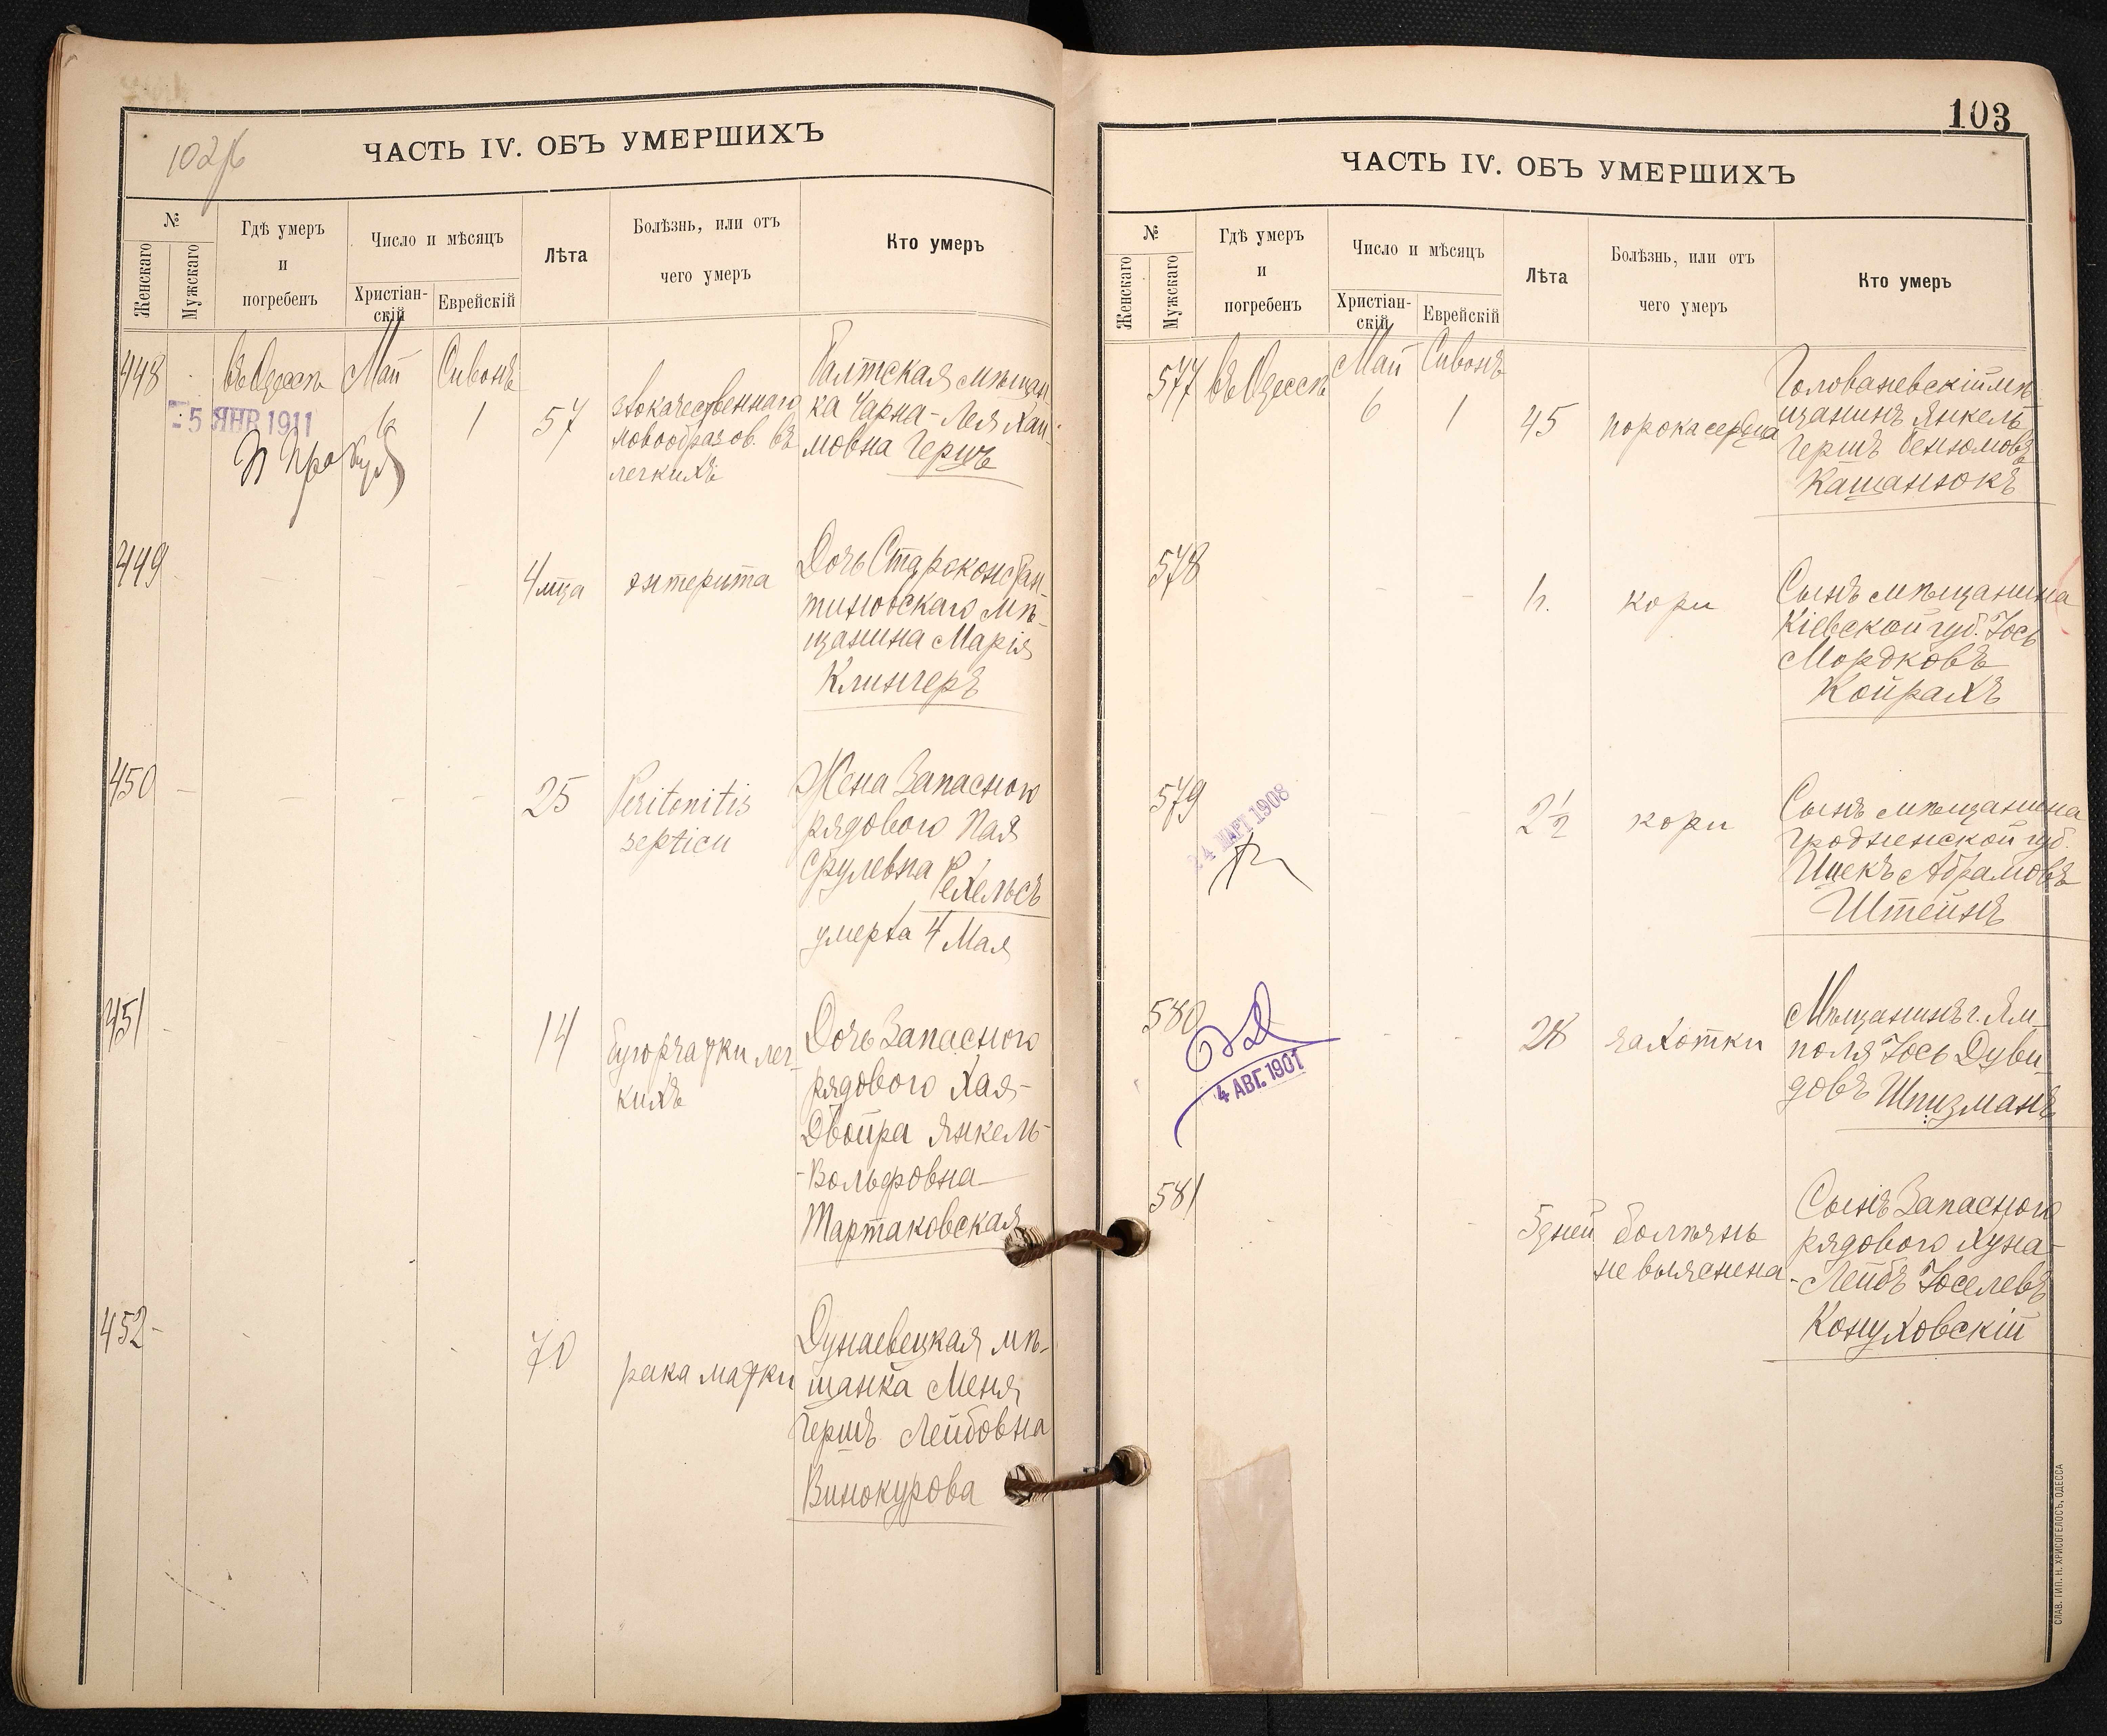 102 об
ЧАСТЬ IV. ОБЪ УМЕРШИХЪ
№
Женскаго
Мужскаго
Гдѣ умеръ
и
погребенъ
Число и мѣсяцъ
Христіан-
скій
Еврейскій
Лѣта
Болѣзнь, или отъ
чего умеръ
Кто умеръ
448
въ Одессѣ
Май
6
Сивонъ
1
57
злокачественнаго
новообразов. въ
легкихъ
Балтская мѣщан-
ка Чарна-Лея Хаи-
мовна Гершъ
5 ЯНВ 1911
449
4 м̃ца
энтерита
Дочь Старокостан-
тиновскаго мѣ-
щанина Марія
Клингеръ
450
25
Peritonitis
septica
Жена Запасного
рядового Пая
Срулевна Рехельсъ
умерла 4 Мая
451
14
бугорчатки лег-
кихъ
Дочь Запасного
рядового Хая-
Двойра Янкель-
-Вольфовна
Мартаковская
452
70
рака матки
Дунаевецкая мѣ-
щанка Меня
Гершъ Лейбовна
Винокурова
103
ЧАСТЬ IV. ОБЪ УМЕРШИХЪ
№
Женскаго
Мужскаго
Гдѣ умеръ
и
погребенъ
Число и мѣсяцъ
Христіан-
скій
Еврейскій
Лѣта
Болѣзнь, или отъ
чего умеръ
Кто умеръ
577
въ Одессѣ
Май
6
Сивонъ
1
45
порока сердца
Голованевскій мѣ-
щанинъ Янкель
Гершъ Бенюмовъ
Кашанюкъ
578
1 г.
кори
Сынъ мѣщанина
Кіевской губ. Іось
Мордковъ
Койрахъ
579
24 МАРТ 1908
2½
кори
Сынъ мѣщанина
Гродненской губ.
Ицекъ Абрамовъ
Штейнъ
580
4 АВГ. 1901
28
чахотки
Мѣщанинъ г. Ям-
поля Іось Дуви-
довъ Шпизманъ
581
5 дней
болѣзнь
не выяснена
Сынъ Запасного
рядового Хуна-
-Лейбъ Іоселевъ
Конуховскій
СЛАВ. ТИП. Н. ХРИСОГЕЛОСЪ, ОДЕССА